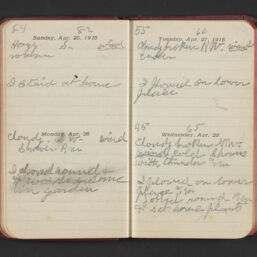 84 82
Sunday, Apr. 25, 1915
Hazy S. wind
warm
I staid at home
Monday, Apr. 26
Cloudy S W- wind
Shower P.M
I chored around &
in garden
55 60
Tuesday, Apr. 27, 1915
Cloudy broken N W. wind
I Plowed on lower
place
45 65
Wednesday, Apr. 28
Cloudy broken N.W.
wind cold showers
with thunder P.M
I plowed on lower
place A.M
around P.M
& set some plants